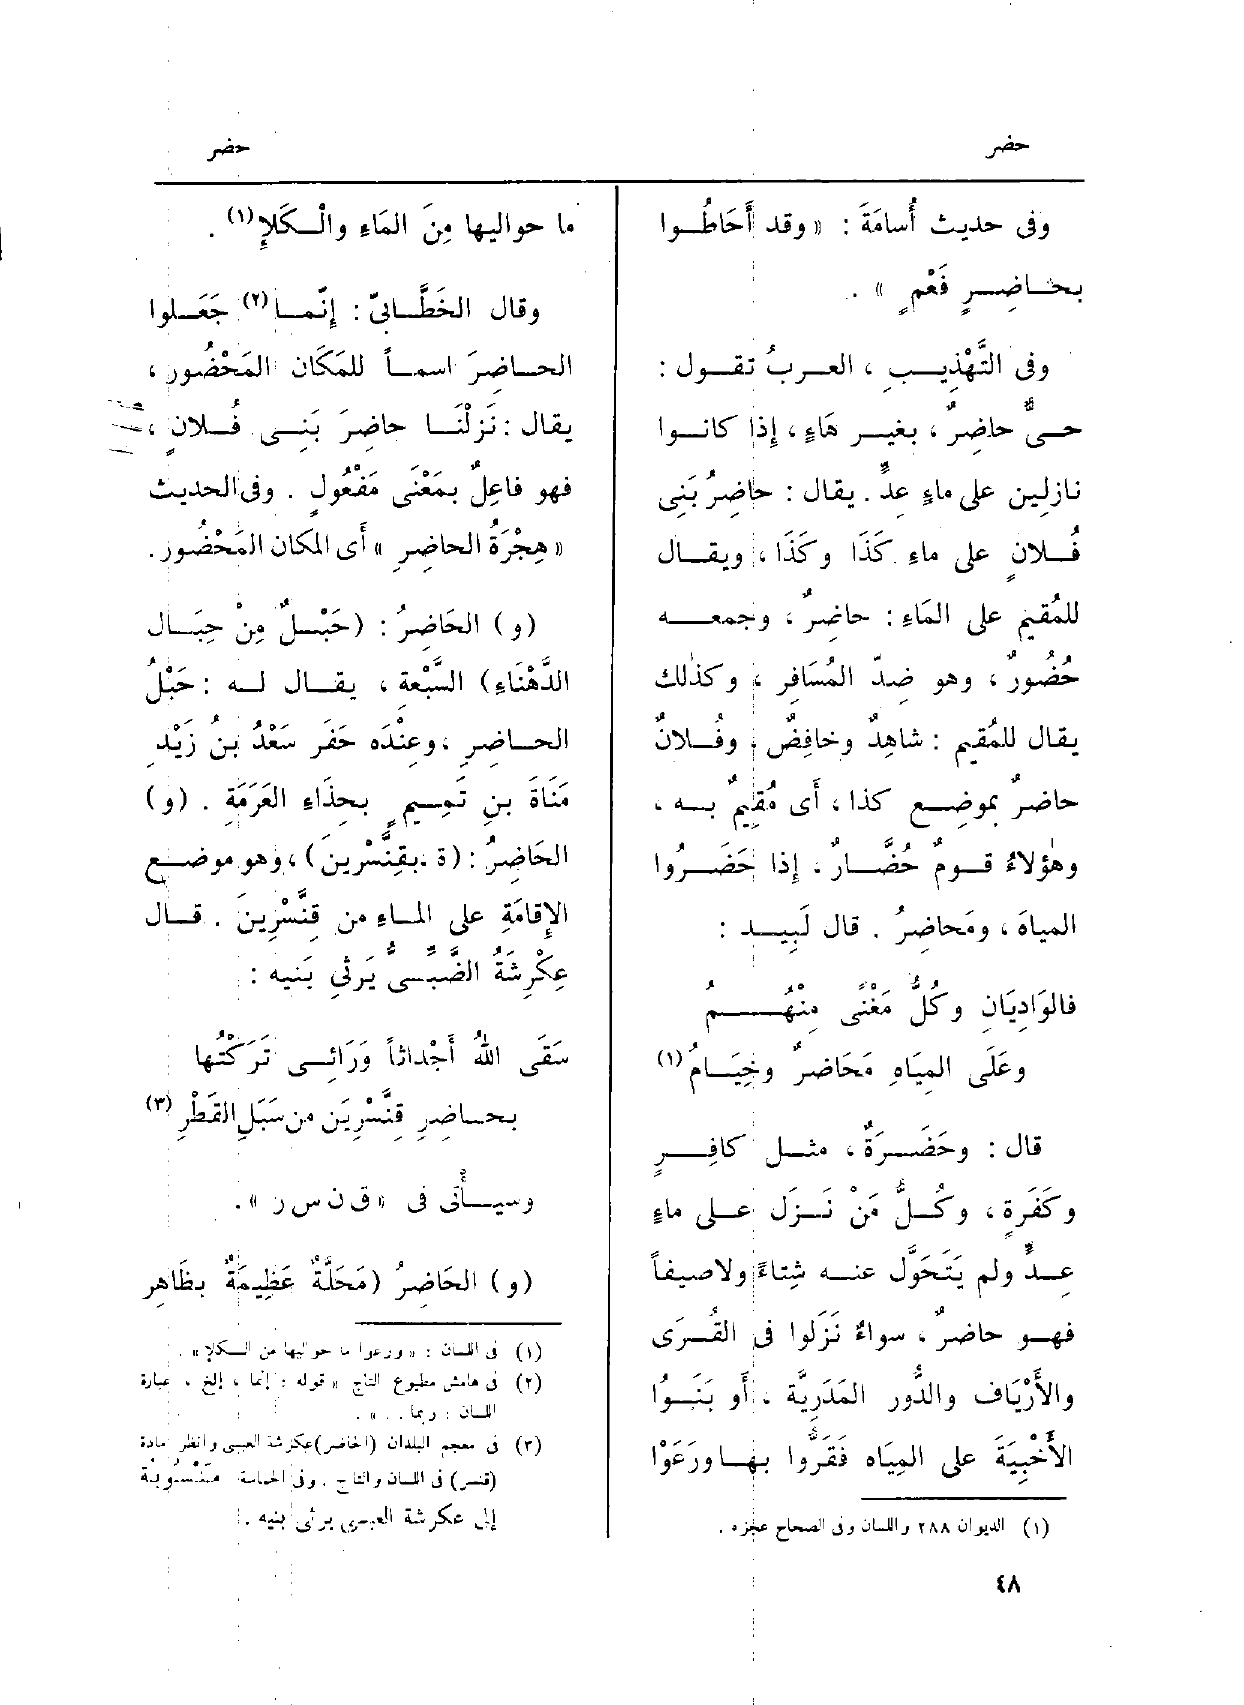 حضر
حضر
وفى حديث أُسامَةَ : « وقد أَحَاطُـوا
بحَـاضِـرٍ فَعْمٍ » .
وفى التَّهْذِيـبِ ، العـربُ تقـول :
حـىٌّ حاضِرٌ ، بغيـر هَاءٍ ، إِذا كانـوا
نازلِين على ماءٍ عِدٍّ . يقال : حاضِرُ بَنِى
فُـلانٍ على ماءِ كَذَا وكَذَا ، ويقـال
للمُقيم على المَاءِ : حاضِرٌ ، وجمعـه
حُضُورٌ ، وهو ضِدّ المُسَافِر ، وكذٰلك
يقال للمُقيم : شاهِدٌ وخافِضٌ ، وفُـلانٌ
حاضرٌ بموضِـع كذا ، أَى مُقِيمٌ بـه ،
وهٰؤلاءُ قـومٌ حُضَّـارٌ ، إِذا حَضَـرُوا
المياهَ ، ومَحاضِرُ . قال لَبِيـد :
فالوَادِيَانِ وكُلُّ مَغْنًى مِنْهُـمُ
وعَلَى المِيَاهِ مَحَاضرٌ وخِيَـامُ (١)
قال : وحَضَـرَةٌ ، مثـل كافِـرٍ
وكَفَرةٍ ، وكُـلُّ مَنْ نَـزَل عـلى ماءٍ
عِـدٍّ ولم يَتَحَوَّل عنـه شِتاءً ولاصيفاً
فهـو حاضرٌ ، سواءٌ نَزَلوا فى القُـرَى
والأَرْيَاف والدُّور المَدَرِيَّة ، أَو بَنَـوُا
الأَخْبِيَةَ على المِيَاه فَقَرُّوا بهـا ورَعَوْا
(١) الديوان ٢٨٨ واللسان وفى الصحاح عجزه .
ما حواليها مِنَ المَاءِ والْـكَلَإِ (١) .
وقال الخَطَّـابىّ : إِنّمـا (٢) جَعَـلوا
الحـاضِرَ اسمـاً للمَكَان المَحْضُور ،
يقال : نَزَلْنَـا حاضِرَ بَنِـى فُـلانٍ ،
فهو فاعِلٌ بمَعْنَى مَفْعُولٍ . وفى الحديث
« هِجْرَةُ الحاضِرِ » أَى المكان المَحْضُور .
(و) الحَاضِرُ : (حَبْـلٌ مِنْ حِبَـال
الدَّهْنَاءِ) السَّبْعة ، يقـال لـه : حَبْلُ
الحـاضِرِ ، وعِنْدَه حَفَر سَعْدُ بنُ زَيْدِ
مَنَاةَ بنِ تَمِـيمٍ بحِذَاءِ العَرَمَةِ . (و)
الحَاضِرُ : (ة . بقِنَّسْرِينَ) ، وهو موضـع
الإِقامَةِ على المـاءِ من قِنَّسْرِينَ . قـال
عِكْرِشَةُ الضَّبِّـىُّ يَرثِى بَنيه :
سَقَى اللهُ أَجْداثاً وَرَائـى تَرَكْتُها
بحـاضِرِ قِنَّسْرِيَن من سَبَلِ القَطْرِ (٣)
وسيـأْتى فى « ق ن س ر » .
(و) الحَاضِرُ (مَحَلَّةٌ عَظِيمَةٌ بظَاهِرِ
(١) فى اللسان : « ورعوا ما حواليها من الـكلإ » .
(٢) فى هامش مطبوع التاج « قوله : إنما ، إلخ ، عبارة
اللسان : ربما . . » .
(٣) فى معجم البلدان (الحاضر) عكرشة العبسى وانظر مادة
(قنسر) فى اللسان والتاج . وفى الحماسة منسوبة
إلى عكرشة العبسى يرثى بنيه .
٤٨